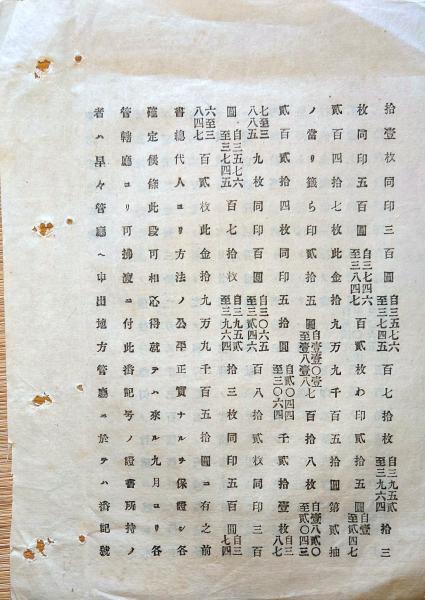 拾壹枚同印三百圓自三五七六至三七四五百七拾枚自三九五貳至三九六四拾三
枚同印五百圓自三七四六至三八四七百貳枚わ印貳拾五圓自壹至貳四七
貳百四拾七枚此金拾九万九千百五拾圓第貳抽
ノ當り籤ら印貳拾五圓自壹壹〇壹至壹八壹八七百拾八枚自壹八貳〇至貳〇四三
貳百貳拾四枚同印五拾圓自貳〇四四至三〇六四千貳拾壹枚自三八七
七至三八八五九枚同印百圓自三〇六五至三貳四六百八拾貳枚同印三百
圓自三五七六至三七四五百七拾枚自三九五貳至三九六四拾三枚同印五百圓自三七四
六至三八四七百貳枚此金拾九万九千百五拾圓ニ有之前
書總代人ヨリ方法ノ公平正實ナルヲ保證シ各
確定候條此段可相心得就テハ來ル九月ヨリ各
管轄廳ヨリ可拂渡ニ付此番記号ノ證書所持ノ
者ハ早々管廳ヘ申出地方管廳ニ於テハ番記號